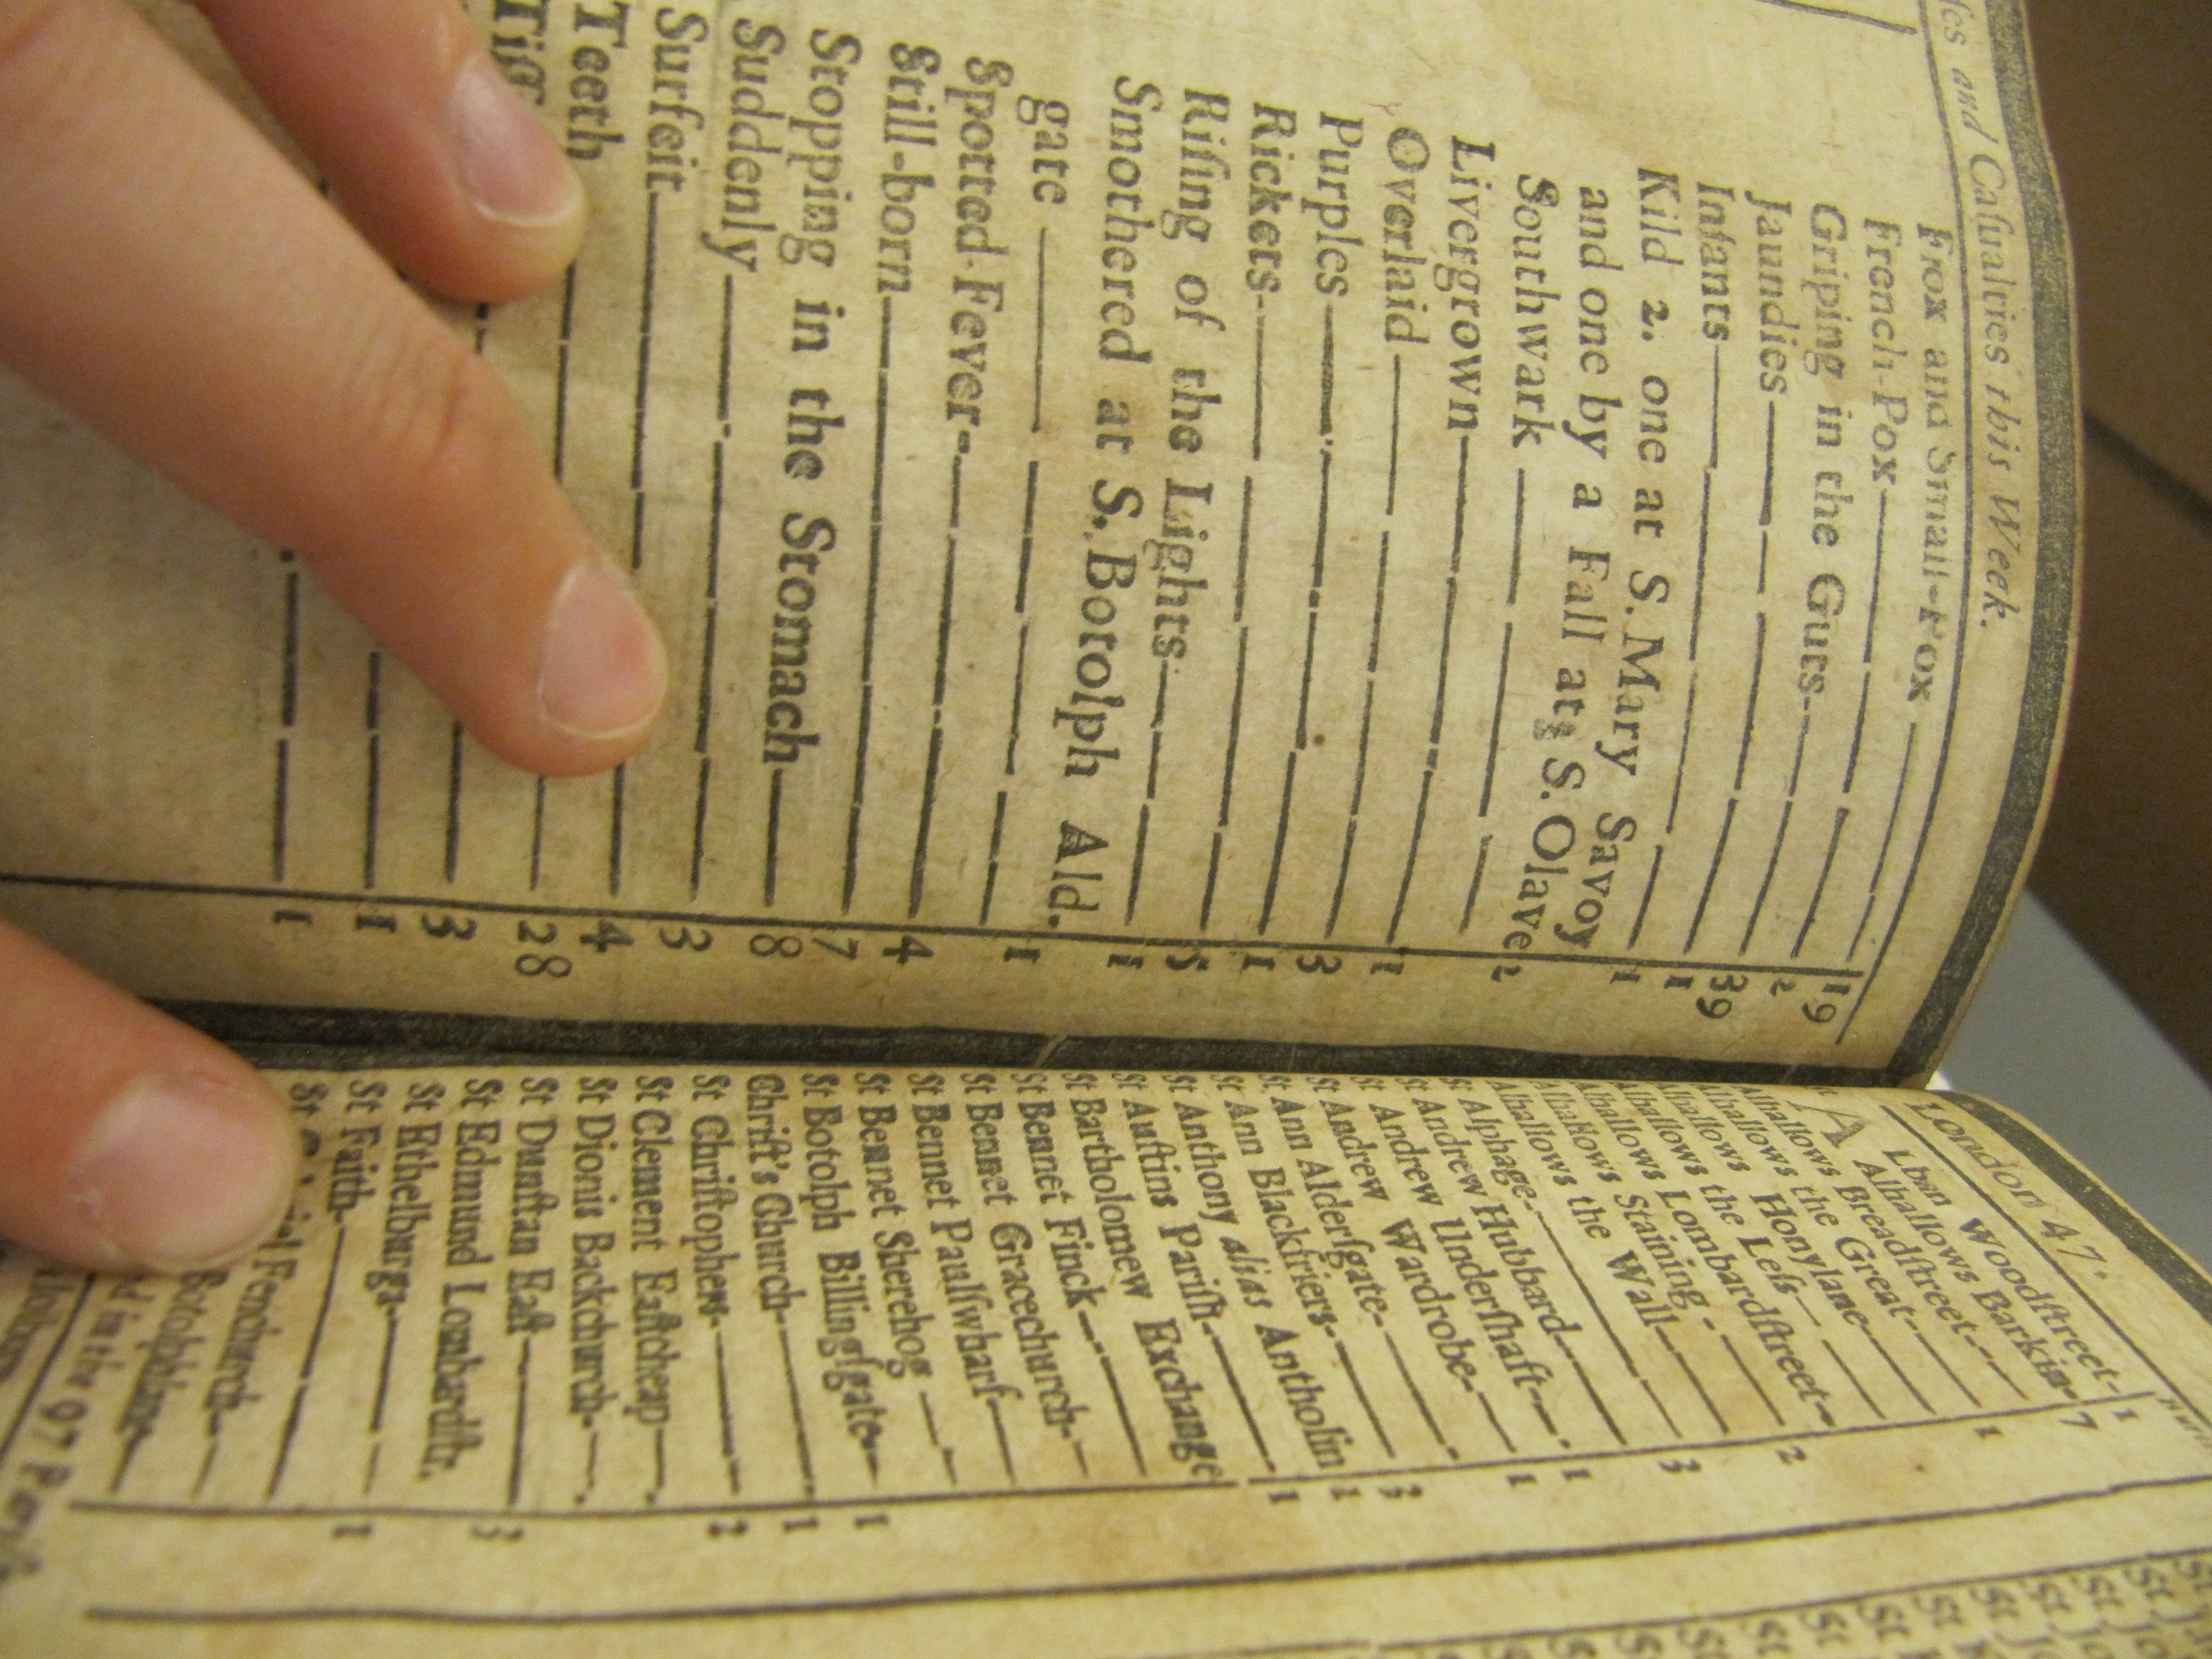 ſes and Caſualties this Week.
Flox and Small-Pox 19
French-Pox 2
Griping in the Guts 39
Jaundies 1
Infants 1
Kild 2. one at S. Mary Savoy
and one by a Fall at S. Olave
Southwark 2
Livergrown 1
Overlaid 3
Purples 1
Rickets 5
Riſing of the Lights 1
Smothered at S. Botolph Ald.
gate 1
Spotted Fever 4
Still-born 7
Stopping in the Stomach 8
Suddenly 3
Surfeit 4
Teeth 28
3
1
1
London 47.
Alban Woodſtreet 1
Alhallows Barking 7
Alhallows Breadſtreet
Alhallows the Great 1
Alhallows Honylane
Alhallows the Leſs
Alhallows Lombardſtreet
Alhallows Staining 2
Alhallows the Wall
St Alphage 3
St Andrew Hubbard
St Andrew Underſhaft 1
St Andrew Wardrobe 1
St Ann Alderſgate
St Ann Blackfriers 3
St Anthony alias Antholin 1
St Auſtins Pariſh 1
St Bartholomew Exchange
St Bennet Finck
St Bennet Gracechurch
St Bennet Paulſwharf
St Bennet Sherehog
St Botolph Billingſgate 1
Chriſt's Church 1
St Chriſtophers 2
St Clement Eaſtcheap
St Dionis Backchurch
St Dunſtan Eaſt 3
St Edmund Lombardſtr.
St Ethelburga 1
St Faith
St Fenchurch
Botolphlane
in the 97 Pariſ